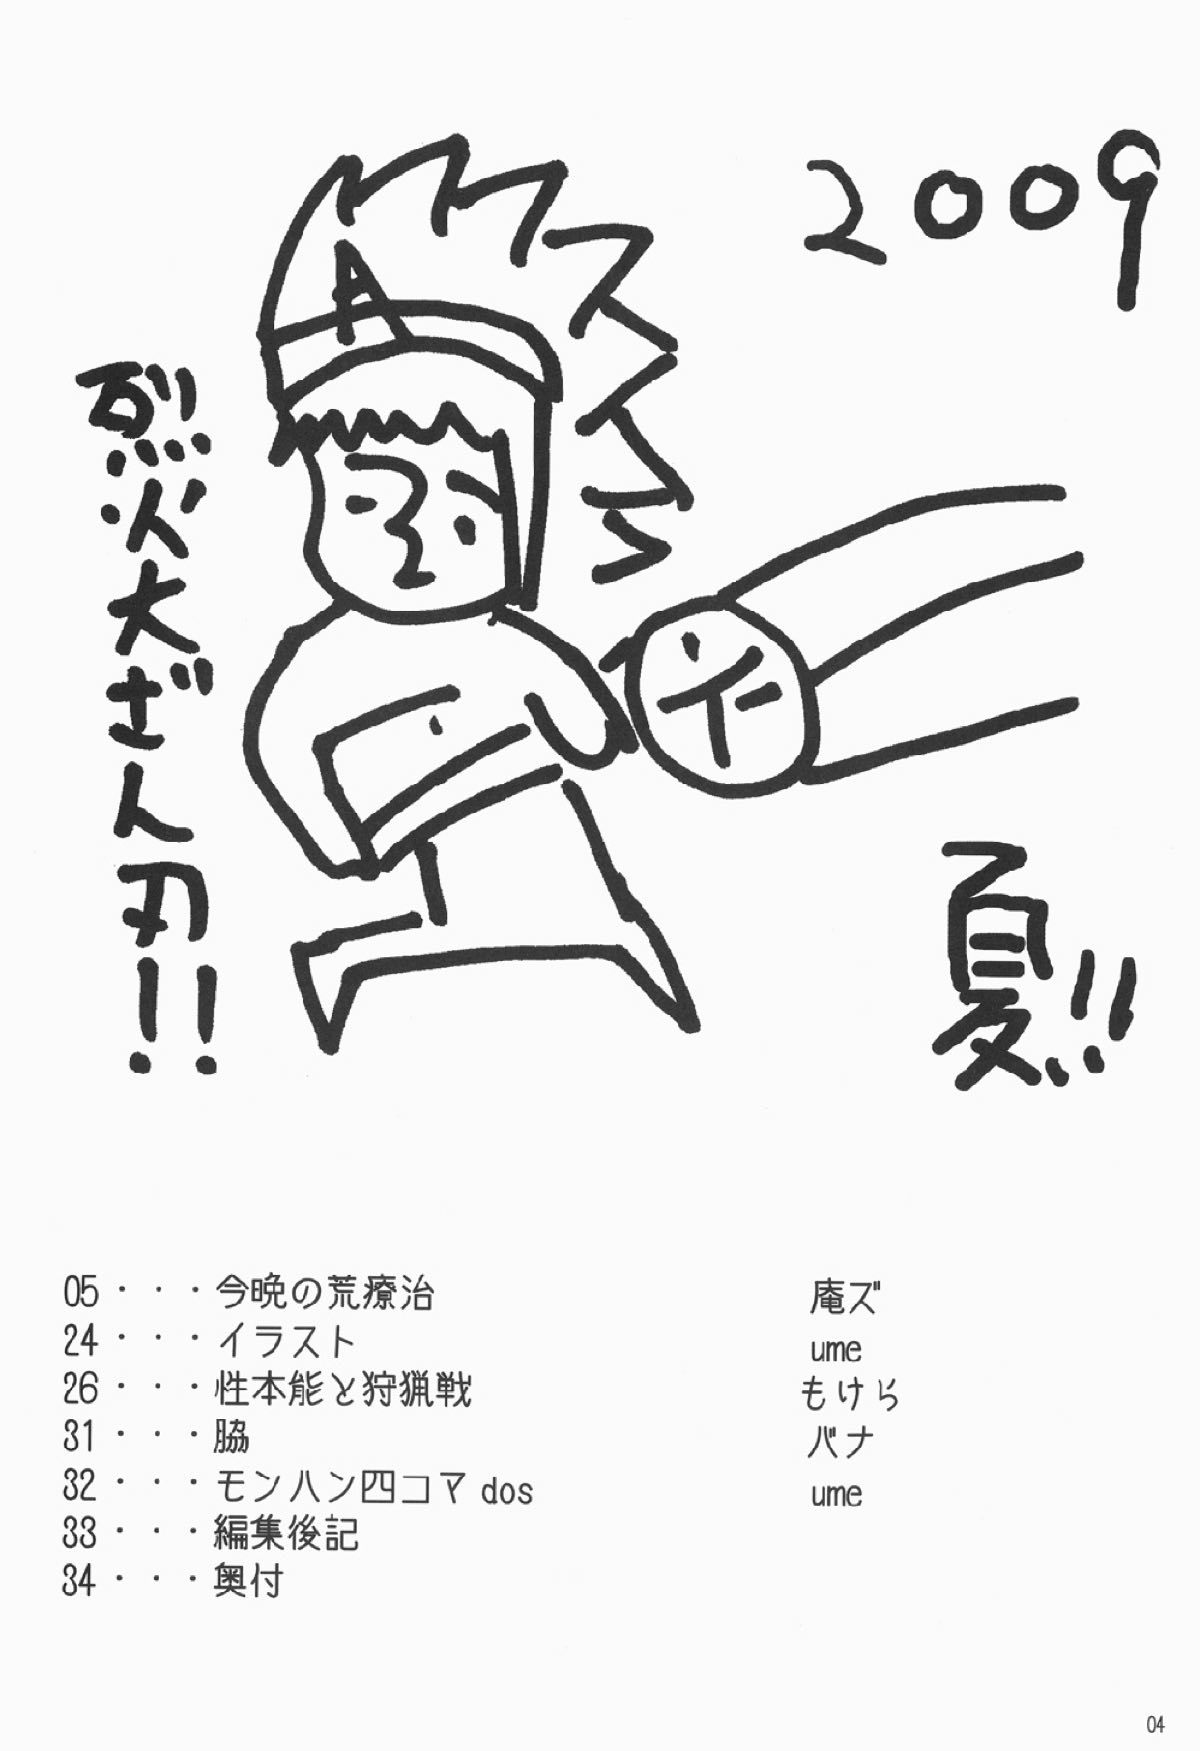 2009
烈火大ざん刃!!
夏!!
05・・・今晩の荒療治 庵ズ
24・・・イラスト ume
26・・・性本能と狩猟戦 もけら
31・・・脇 バナ
32・・・モンハン四コマ dos ume
33・・・編集後記
34・・・奥付
04